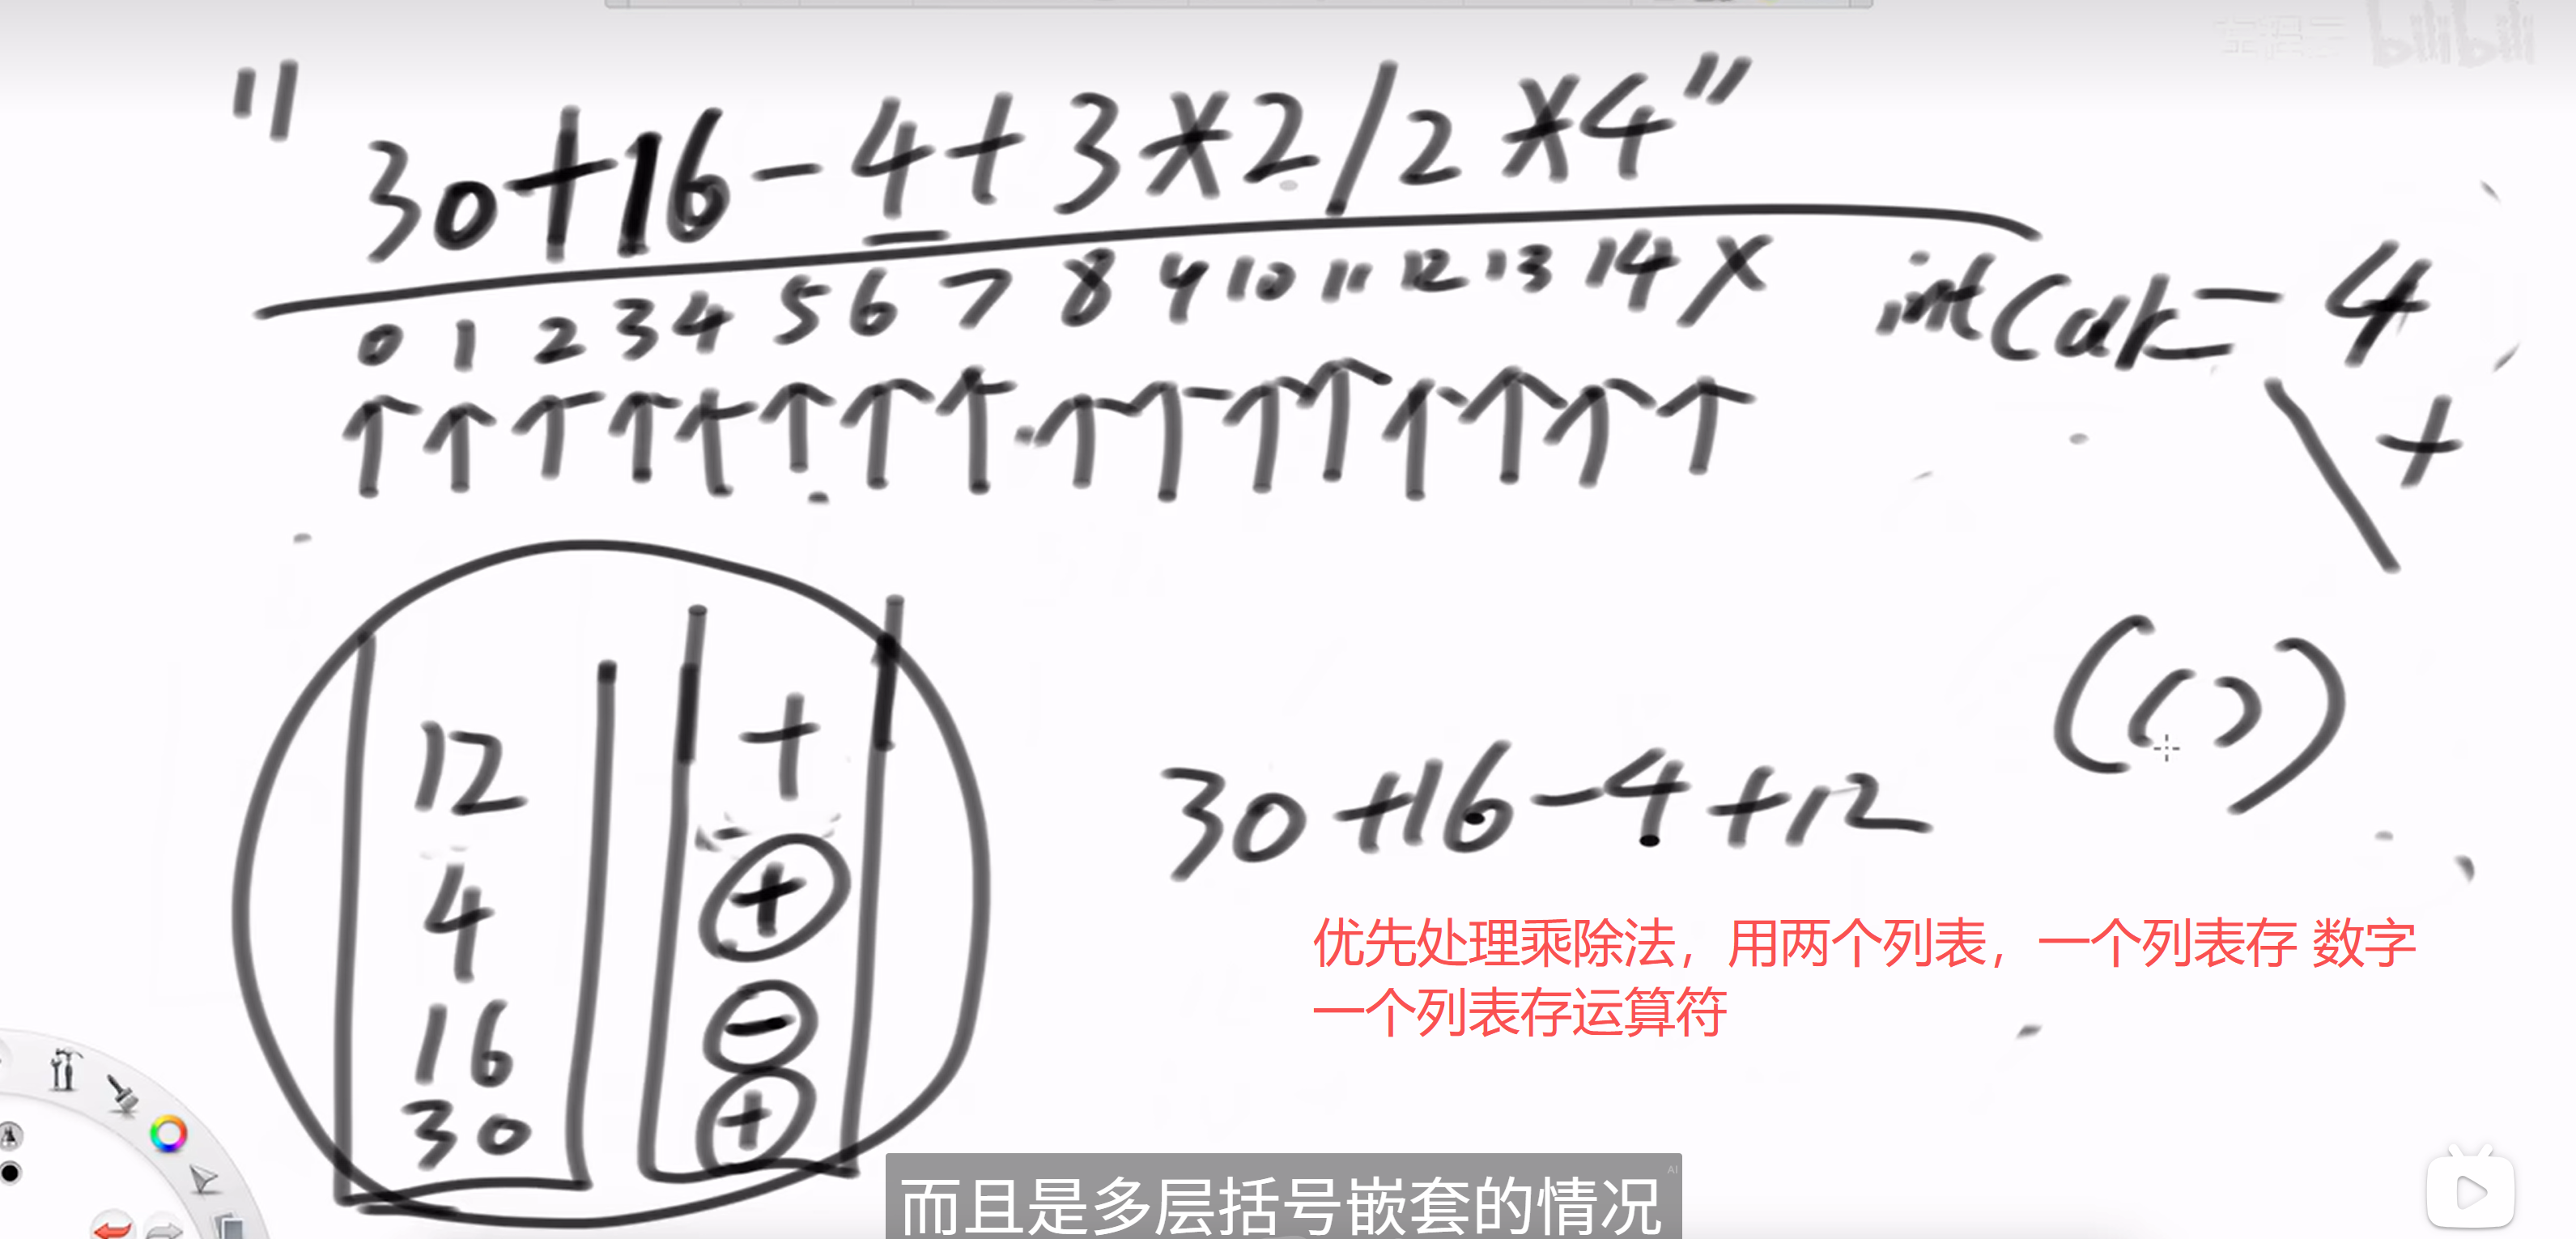 左程云 bilibili
"30+16-4+3×2/2×4"
0 1 2 3 4 5 6 7 8 9 10 11 12 13 14 X
int cur = 4
+
(())
12 +
4 +
16 -
30 +
30+16-4+12
优先处理乘除法，用两个列表，一个列表存 数字
一个列表存运算符
AI
而且是多层括号嵌套的情况